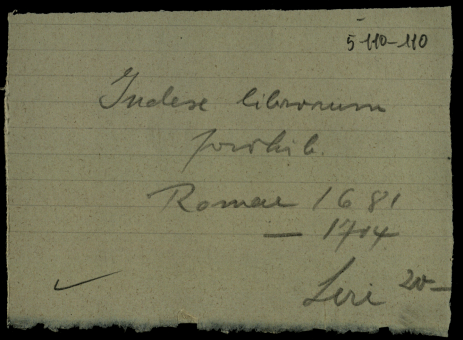 5-110-110
Index librorum
prohib.
Romae 1681
— 1704
Leri 20—